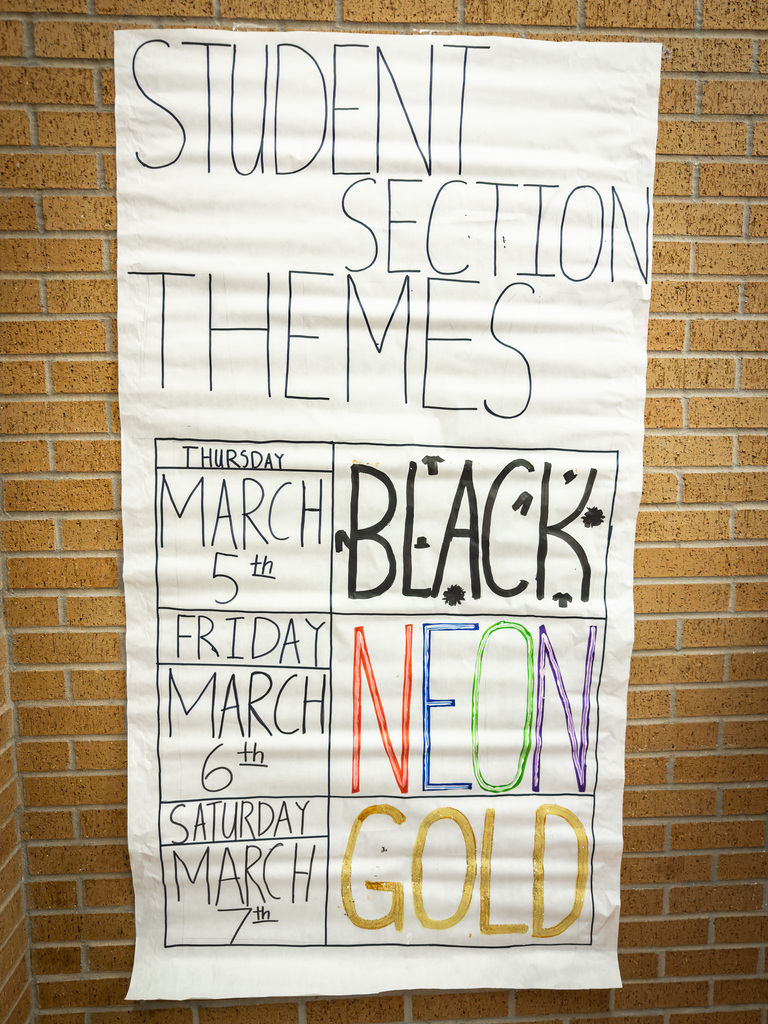 STUDENT
SECTION
THEMES
THURSDAY
MARCH
5th
BLACK
FRIDAY
MARCH
6th
NEON
SATURDAY
MARCH
7th
GOLD